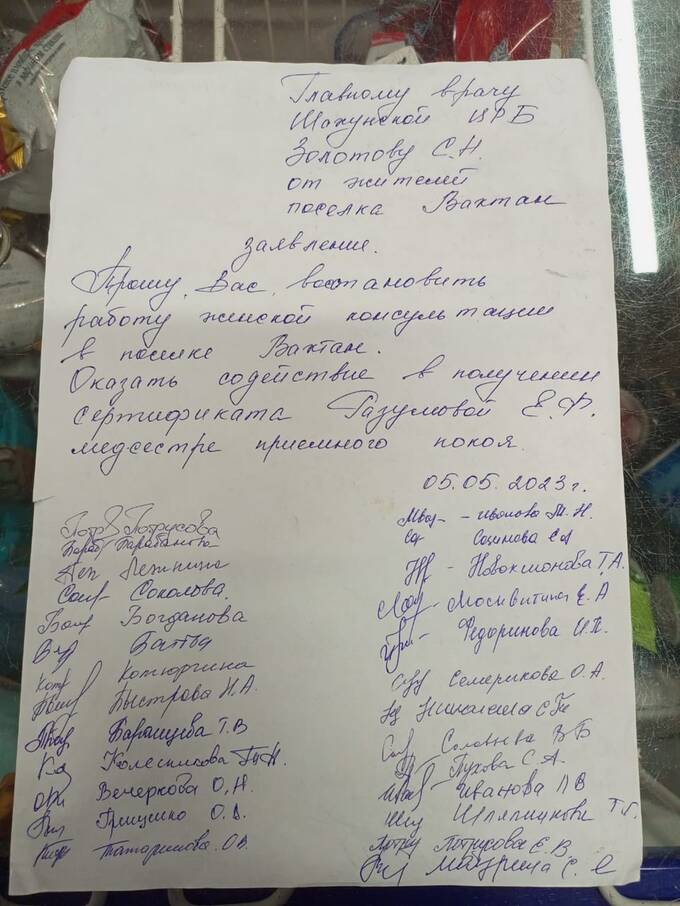 Главному врачу
Шахунской ЦРБ
Золотову С.Н.
от жителей
поселка Вахтан
заявление.
Прошу Вас восстановить
работу женской консультации
в поселке Вахтан.
Оказать содействие в получении
сертификата Разумовой Е.Ф.
медсестре приемного покоя.
05.05.2023г.
Потрусова
Барабанова
Соколова.
Богданова
Котюргина
Быстрова Н.А.
Барышева Т.В
Колесникова
Вечеркова О.Н.
Грищенко О.В.
Татаринова О.В
Иванова М.Н.
Созинова С.А
Новоксионова Т.А.
Москвитина Е.А
Федоринова И.П.
Семерикова О.А.
Соловьева В.Б
Пухова С.А.
Иванова Л В
Шляпникова Т.Г.
Потрусова Е.В